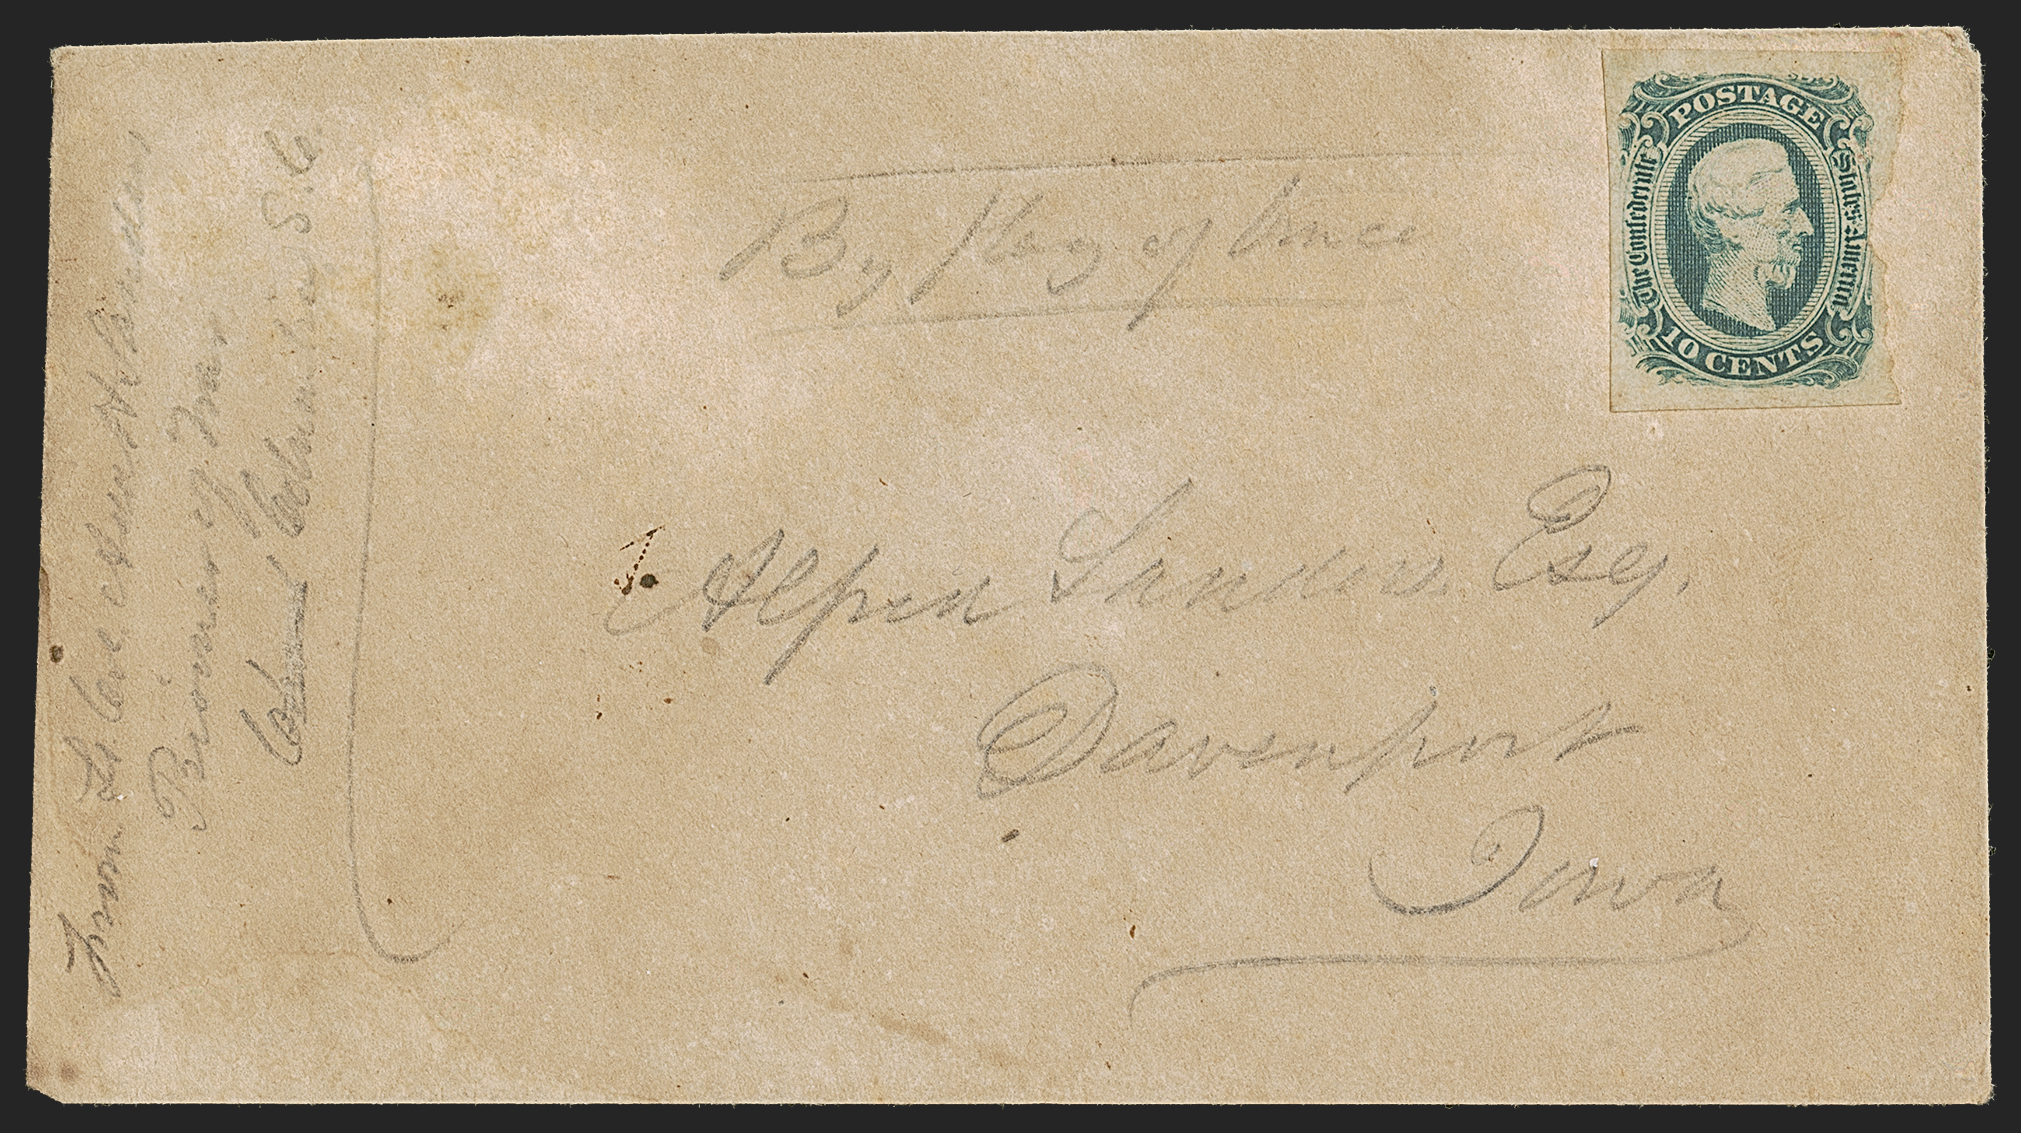 By Flag of Truce
POSTAGE
The Confederate States of America
10 CENTS
Esq.
Davenport
Iowa
From Lt Col
Prisoner of War
Columbia, S.C.